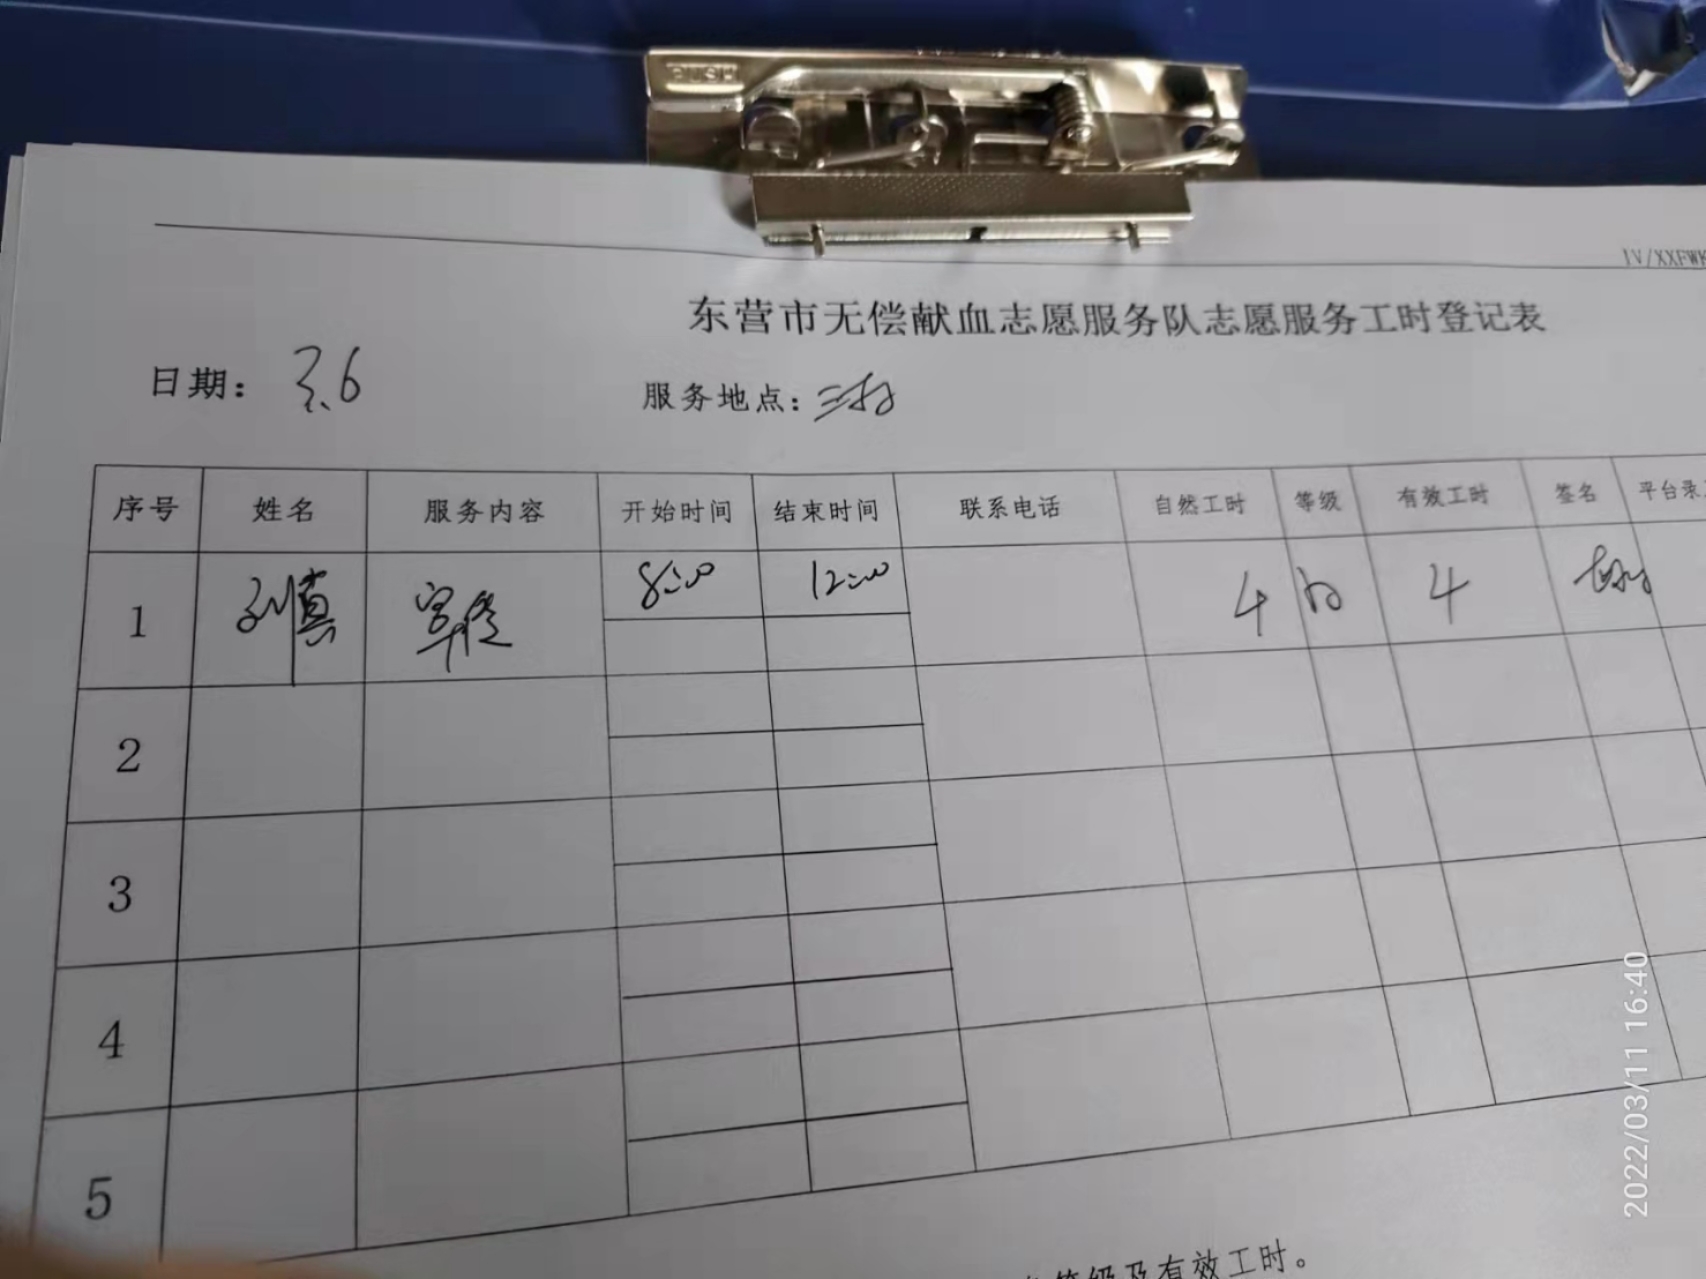 PUSH
IV/XXFWK
东营市无偿献血志愿服务队志愿服务工时登记表
日期： 3.6 服务地点：
序号 姓名 服务内容 开始时间 结束时间 联系电话 自然工时 等级 有效工时 签名 平台录
1 宣传 8:00 12:00 4 4
2
3
4
5
等级及有效工时。
2022/03/11 16:40